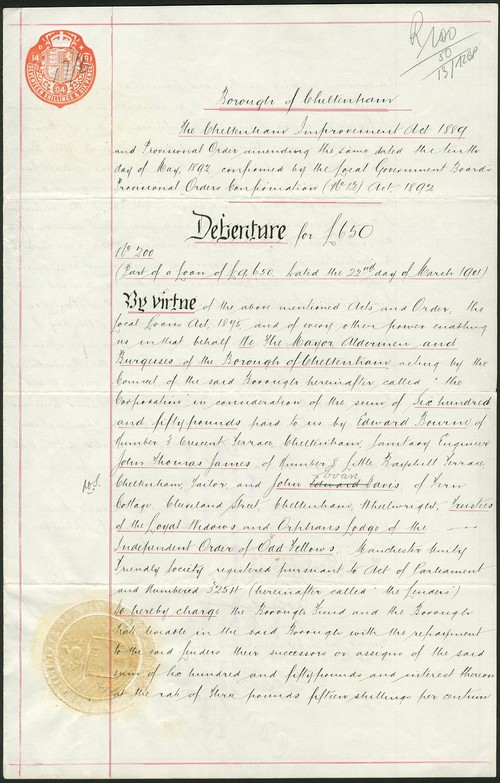 R100
50
13/
14 91
04
Borough of Cheltenham
The Cheltenham Improvement Act 1889
and Provisional Order amending the same dated the tenth
day of May, 1892 confirmed by the Local Government Boards
Provisional Orders Confirmation (No 12) Act 1892
Debenture for £650
No 200
(Part of a Loan of £9,650 dated the 22nd day of March 1901)
By virtue of the above mentioned Acts and Order, the
Local Loans Act, 1875, and of every other power enabling
us in that behalf We The Mayor Aldermen and
Burgesses of the Borough of Cheltenham acting by the
Council of the said Borough hereinafter called "the
Corporation" in consideration of the sum of Six hundred
and fifty pounds paid to us by Edward Bourne of
Number 3 Crescent Terrace, Cheltenham, Sanitary Engineer
John Thomas James, of Number 8 Little Bayshill Terrace,
Cheltenham, Tailor, and John Evan Edward Davis of Fern
Cottage, Cleveland Street, Cheltenham, Wheelwright, Trustees
of the Loyal Widows and Orphans Lodge of the
Independent Order of Odd Fellows, Manchester Unity
Friendly Society registered pursuant to Act of Parliament
and Numbered (hereinafter called "the Lenders")
Do hereby charge the Borough Fund and the Borough
Rate leviable in the said Borough with the repayment
to the said Lenders their successors or assigns of the said
sum of Six hundred and fifty pounds and interest thereon
at the rate of three pounds fifteen shillings per centum